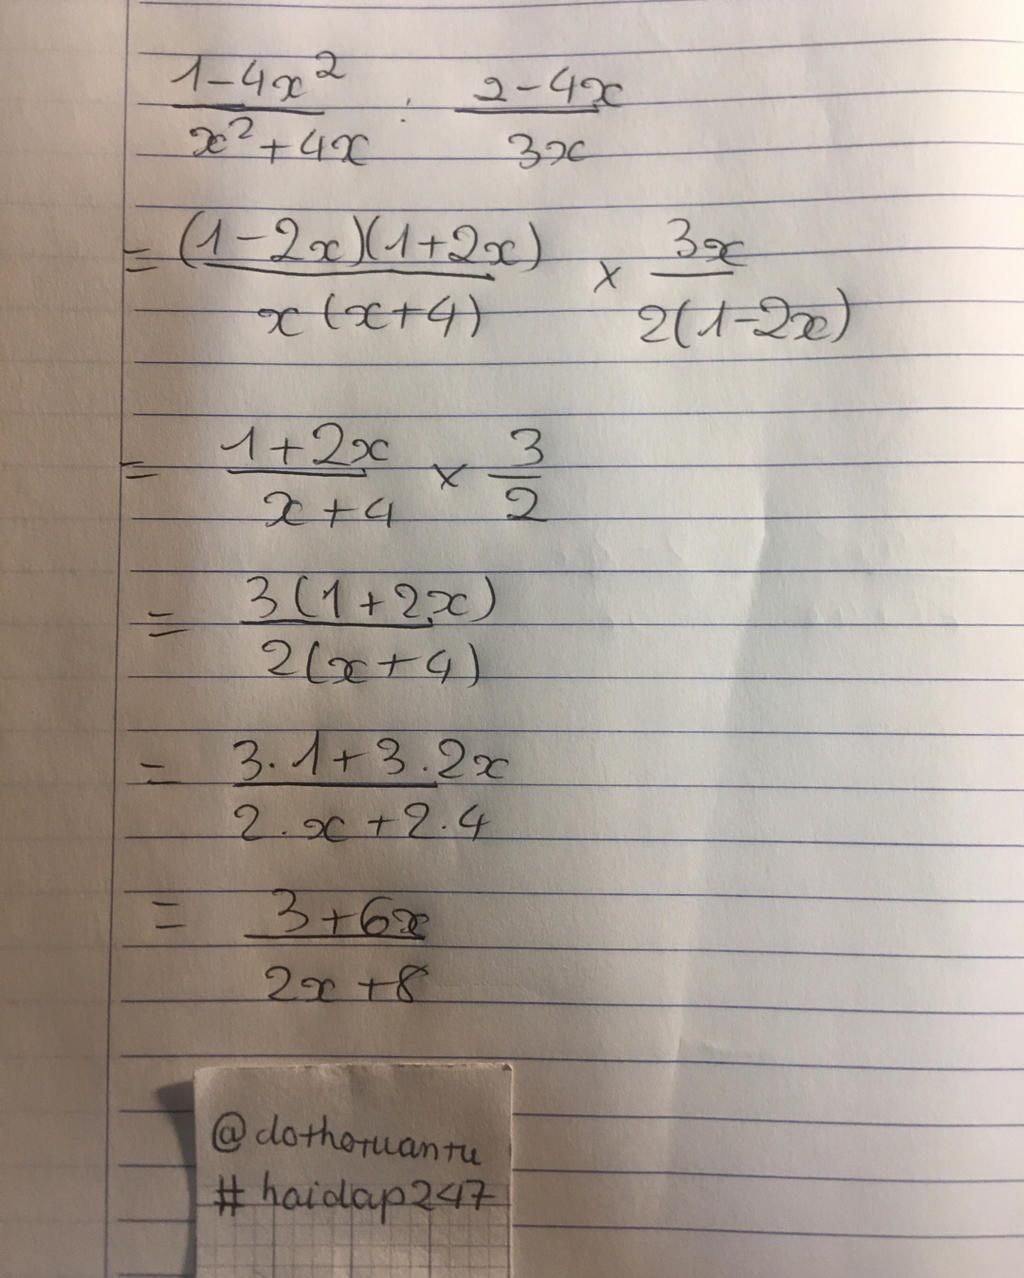 1-4x² / x²+4x : 2-4x / 3x
= (1-2x)(1+2x) / x(x+4) × 3x / 2(1-2x)
= 1+2x / x+4 × 3 / 2
= 3(1+2x) / 2(x+4)
= 3.1+3.2x / 2.x+2.4
= 3+6x / 2x+8
@dothotuantu
#haidap247